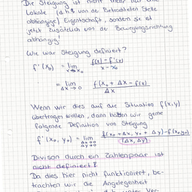 Die Steigung ist nicht mehr nur
Lokale (d.h. von der individuellen Stelle
abhängige) Eigenschaft, sondern sie ist
jetzt zusätzlich von der Bewegungsrichtung
abhängig!
Wie war Steigung definiert?
f'(x₀) = lim f(x) - f(x₀) / x - x₀
= lim Δx→0 f(x₀ + Δx) - f(x₀) / Δx
Wenn wir dies auf die Situation f(x,y)
übertragen wollen, dann hätten wir gerne
folgende Definition von Steigung
f'(x₀, y₀) = lim f(x₀ + Δx, y₀ + Δy) - f(x₀, y₀) / (Δx, Δy)
Division durch ein Zahlenpaar ist
nicht definiert!
Da dies hier nicht funktioniert, be-
trachten wir die Angelegenheit